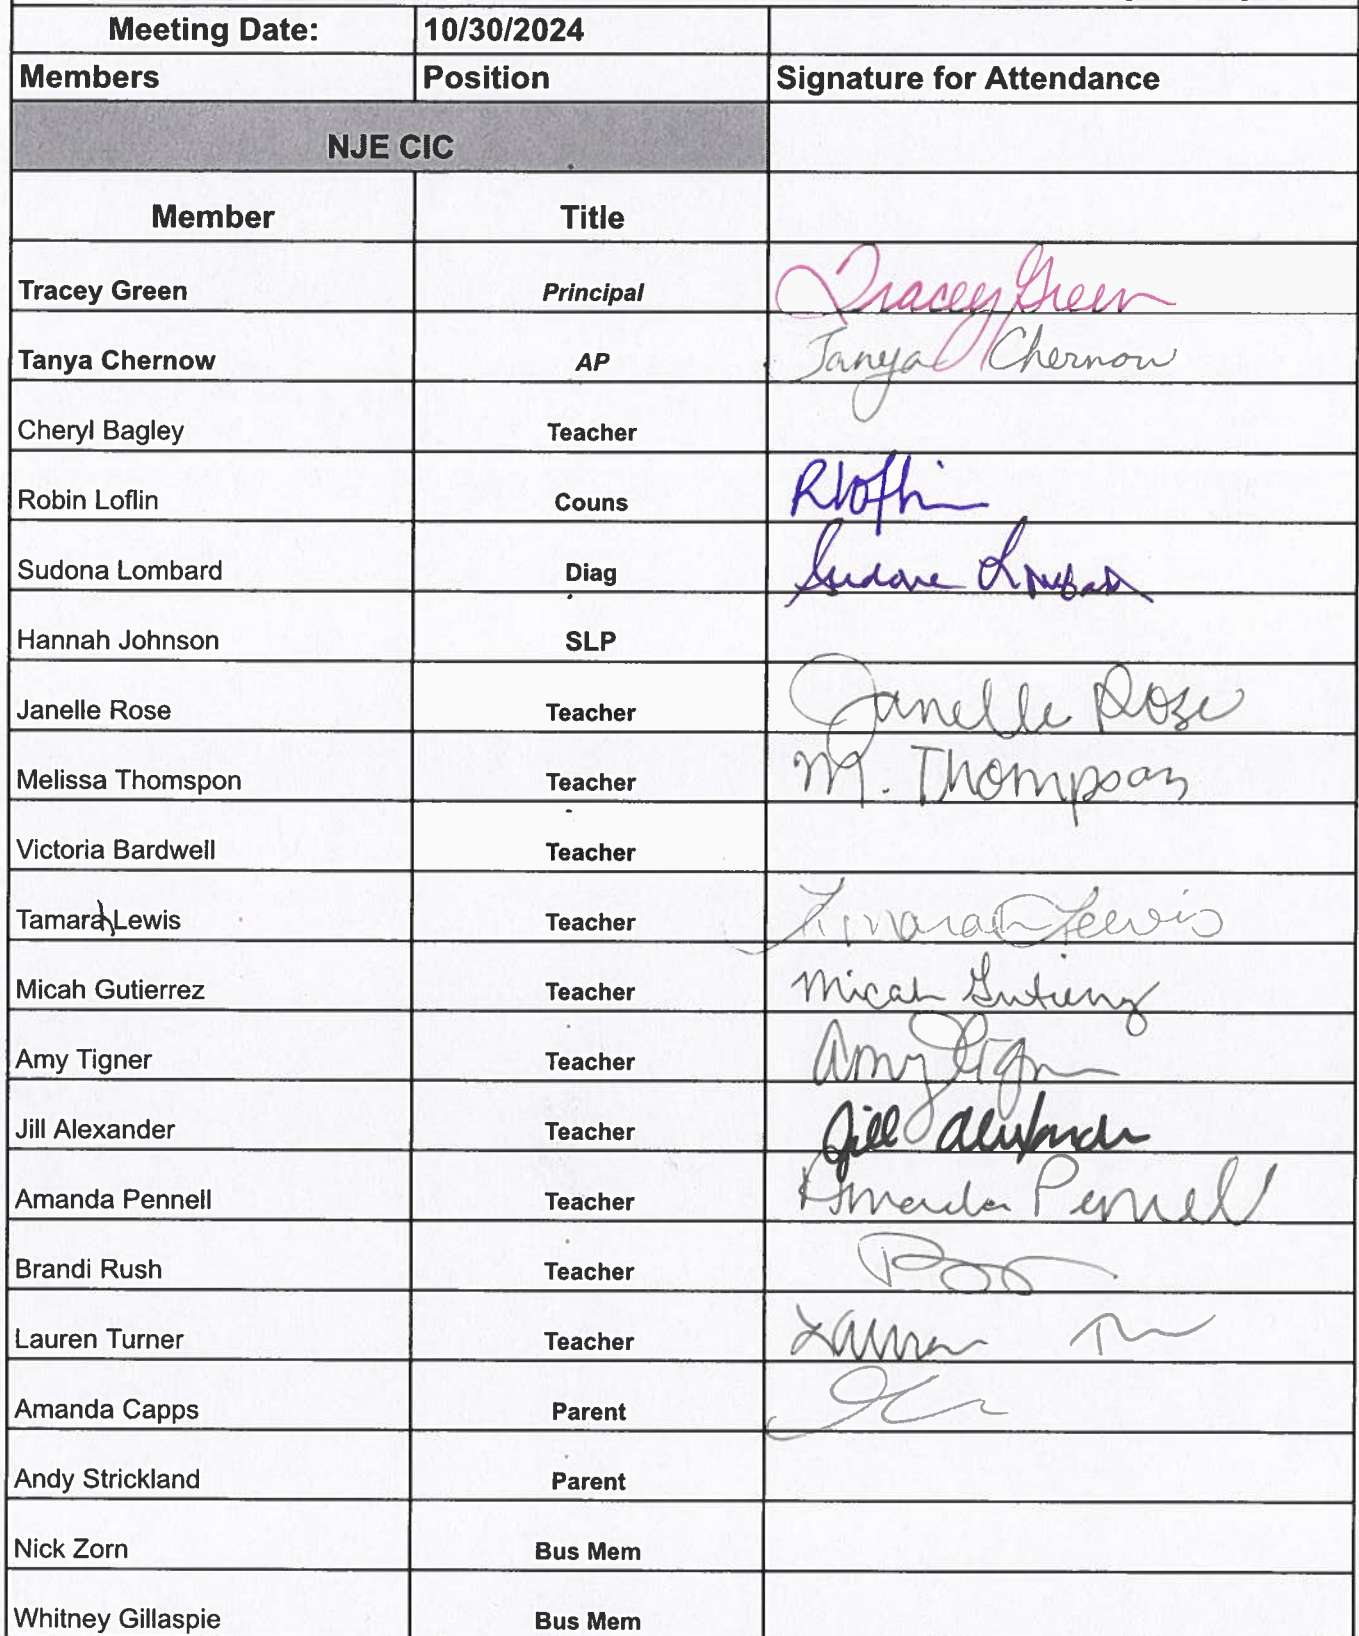 Meeting Date: 10/30/2024
Members Position Signature for Attendance
NJE CIC
Member Title
Tracey Green Principal Tracey Green
Tanya Chernow AP Tanya Chernow
Cheryl Bagley Teacher
Robin Loflin Couns RLoflin
Sudona Lombard Diag Sudona Lombard
Hannah Johnson SLP
Janelle Rose Teacher Janelle Rose
Melissa Thomspon Teacher M. Thompson
Victoria Bardwell Teacher
Tamarah Lewis Teacher Tamarah Lewis
Micah Gutierrez Teacher Micah Gutierrez
Amy Tigner Teacher Amy Tigner
Jill Alexander Teacher Jill Alexander
Amanda Pennell Teacher Amanda Pennell
Brandi Rush Teacher
Lauren Turner Teacher Lauren
Amanda Capps Parent
Andy Strickland Parent
Nick Zorn Bus Mem
Whitney Gillaspie Bus Mem